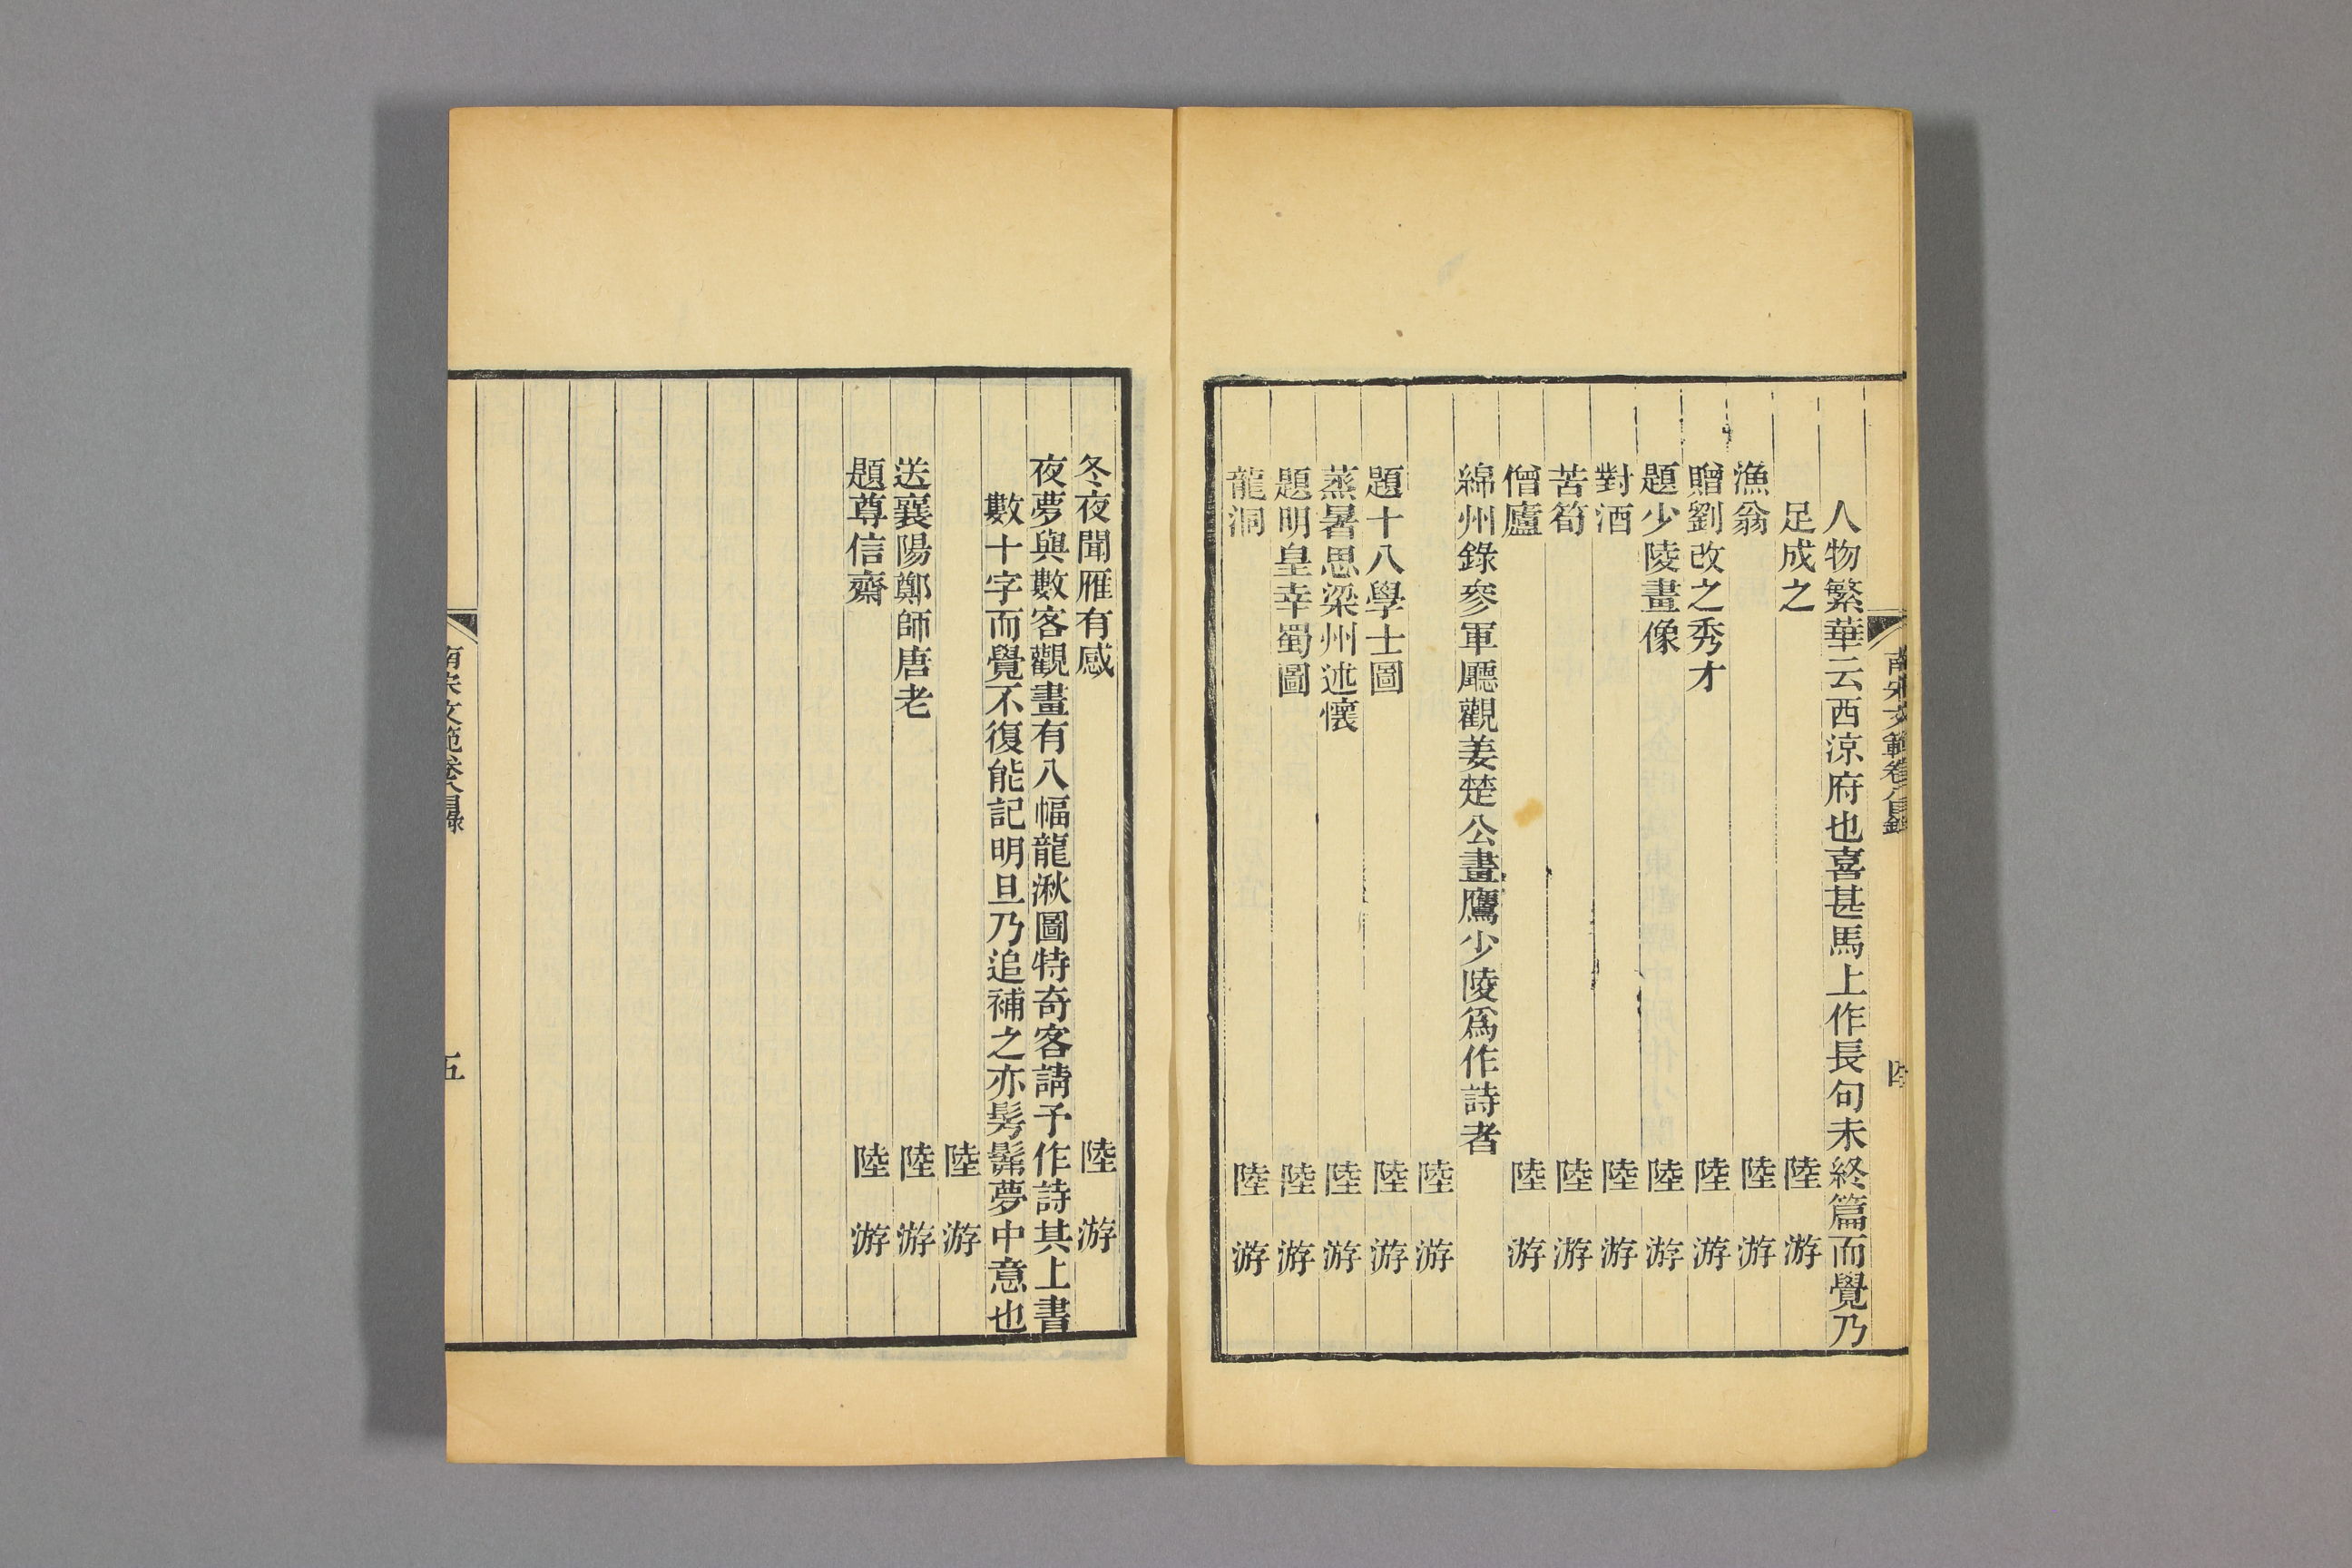 南宋文範卷八目錄
四
人物繁華云西涼府也喜甚馬上作長句未終篇而覺乃
足成之 陸游
漁翁 陸游
贈劉改之秀才 陸游
題少陵畫像 陸游
對酒 陸游
苦筍 陸游
僧廬 陸游
綿州錄參軍廳觀姜楚公畫鷹少陵爲作詩者
陸游
題十八學士圖 陸游
蒸暑思梁州述懷 陸游
題明皇幸蜀圖 陸游
龍洞 陸游
冬夜聞雁有感 陸游
夜夢與數客觀畫有八幅龍湫圖特奇客請予作詩其上書
數十字而覺不復能記明旦乃追補之亦髣髴夢中意也
陸游
送襄陽鄭師唐老 陸游
題尊信齋 陸游
南宋文範卷八目錄
五